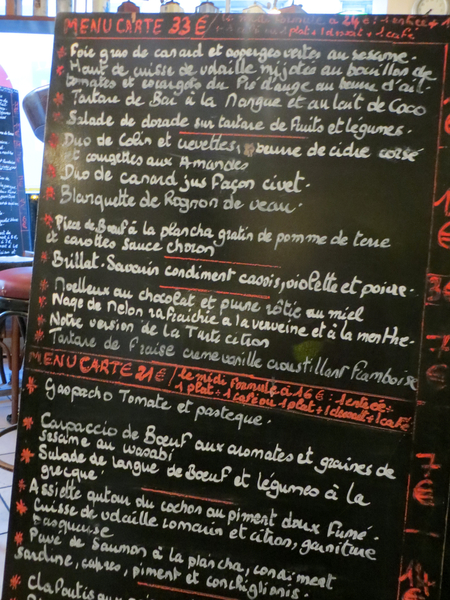 MENU CARTE 33 € / le midi formule à 24 € : 1 entrée + 1
plat + 1 dessert + 1 café
* Foie gras de canard et asperges vertes au sésame.
* Haut de cuisse de volaille mijotés au bouillon de
tomates et escargots du Pré d'ange au beurre d'ail.
* Tartare de Bar à la Mangue et au lait de Coco
* Salade de dorade sur tartare de fruits et légumes.
* Duo de Colin et crevettes, beurre de cidre corsé
et courgettes aux Amandes
* Duo de canard jus façon civet.
* Blanquette de Rognon de veau.
* Pièce de Bœuf à la plancha gratin de pomme de terre
et carottes sauce choron
* Brillat-Savarin condiment cassis, violette et poivre.
* Moelleux au chocolat et prune rôtie au miel
* Nage de Melon rafraîchie à la verveine et à la menthe.
* Notre version de la Tarte citron
* Tartare de Fraise creme vanille croustillant framboise
MENU CARTE 21 € / le midi formule à 16 € : 1 entrée +
1 plat + 1 café ou 1 plat + 1 dessert + 1 café
* Gaspacho Tomate et pasteque.
* Carpaccio de Bœuf aux aromates et graines de
Sesame au wasabi
* Salade de langue de Bœuf et légumes à la
grecque.
* Assiette autour du cochon au piment doux fumé.
* Cuisse de volaille romarin et citron, garniture
basquaise
* Pavé de Saumon à la plancha, condiment
sardine, capres, piment et conchiglionis.
* Clafoutis aux
€
1
€
3€
7
€
7
€
1